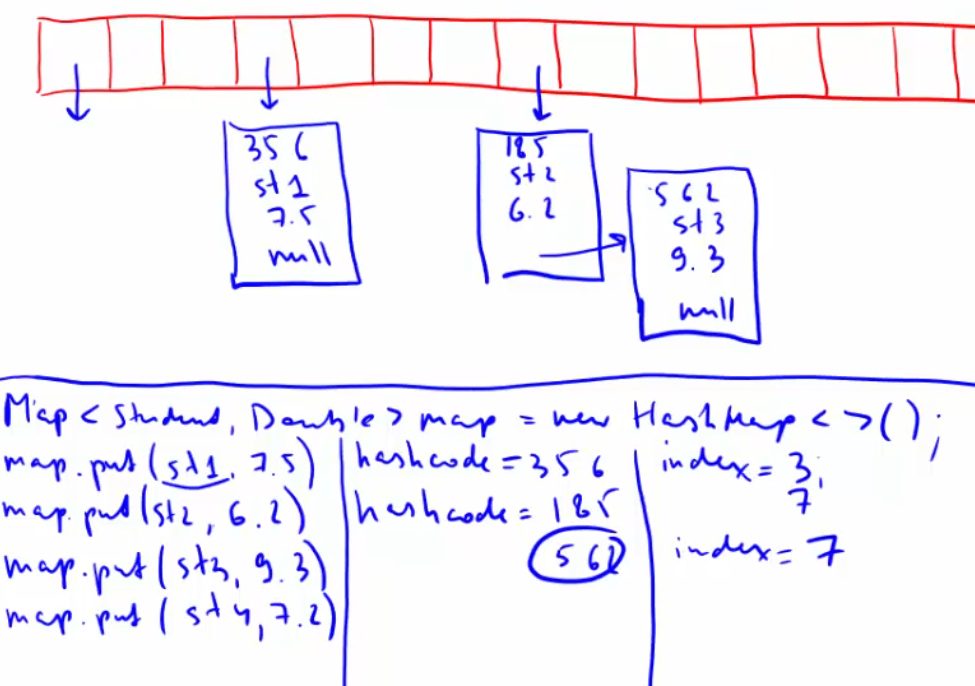 356
st1
7.5
null
185
st2
6.2
562
st3
9.3
null
Map < Student, Double > map = new HashMap < >();
map.put(st1, 7.5)
map.put(st2, 6.2)
map.put(st3, 9.3)
map.put(st4, 7.2)
hashcode = 356
hashcode = 185
562
index = 3;
7
index = 7